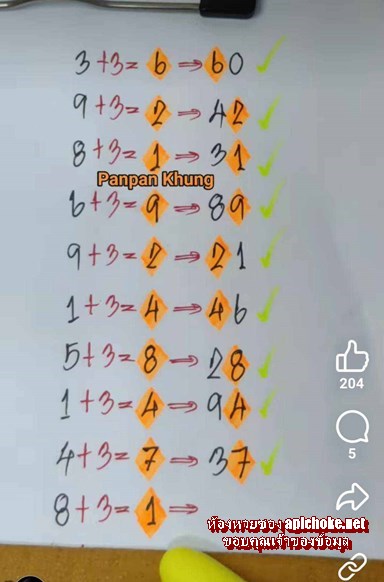 3+3=6⇒60
9+3=2→42
8+3=1⇒31
Panpan Khung
6+3=9⇒89
9+3=2→21
1+3=4⇒46
5+3=8→28
1+3=4⇒94
4+3=7→37
8+3=1⇒
204
5
ห้องหวยซอง apichoke.net
ขอบคุณเจ้าของข้อมูล